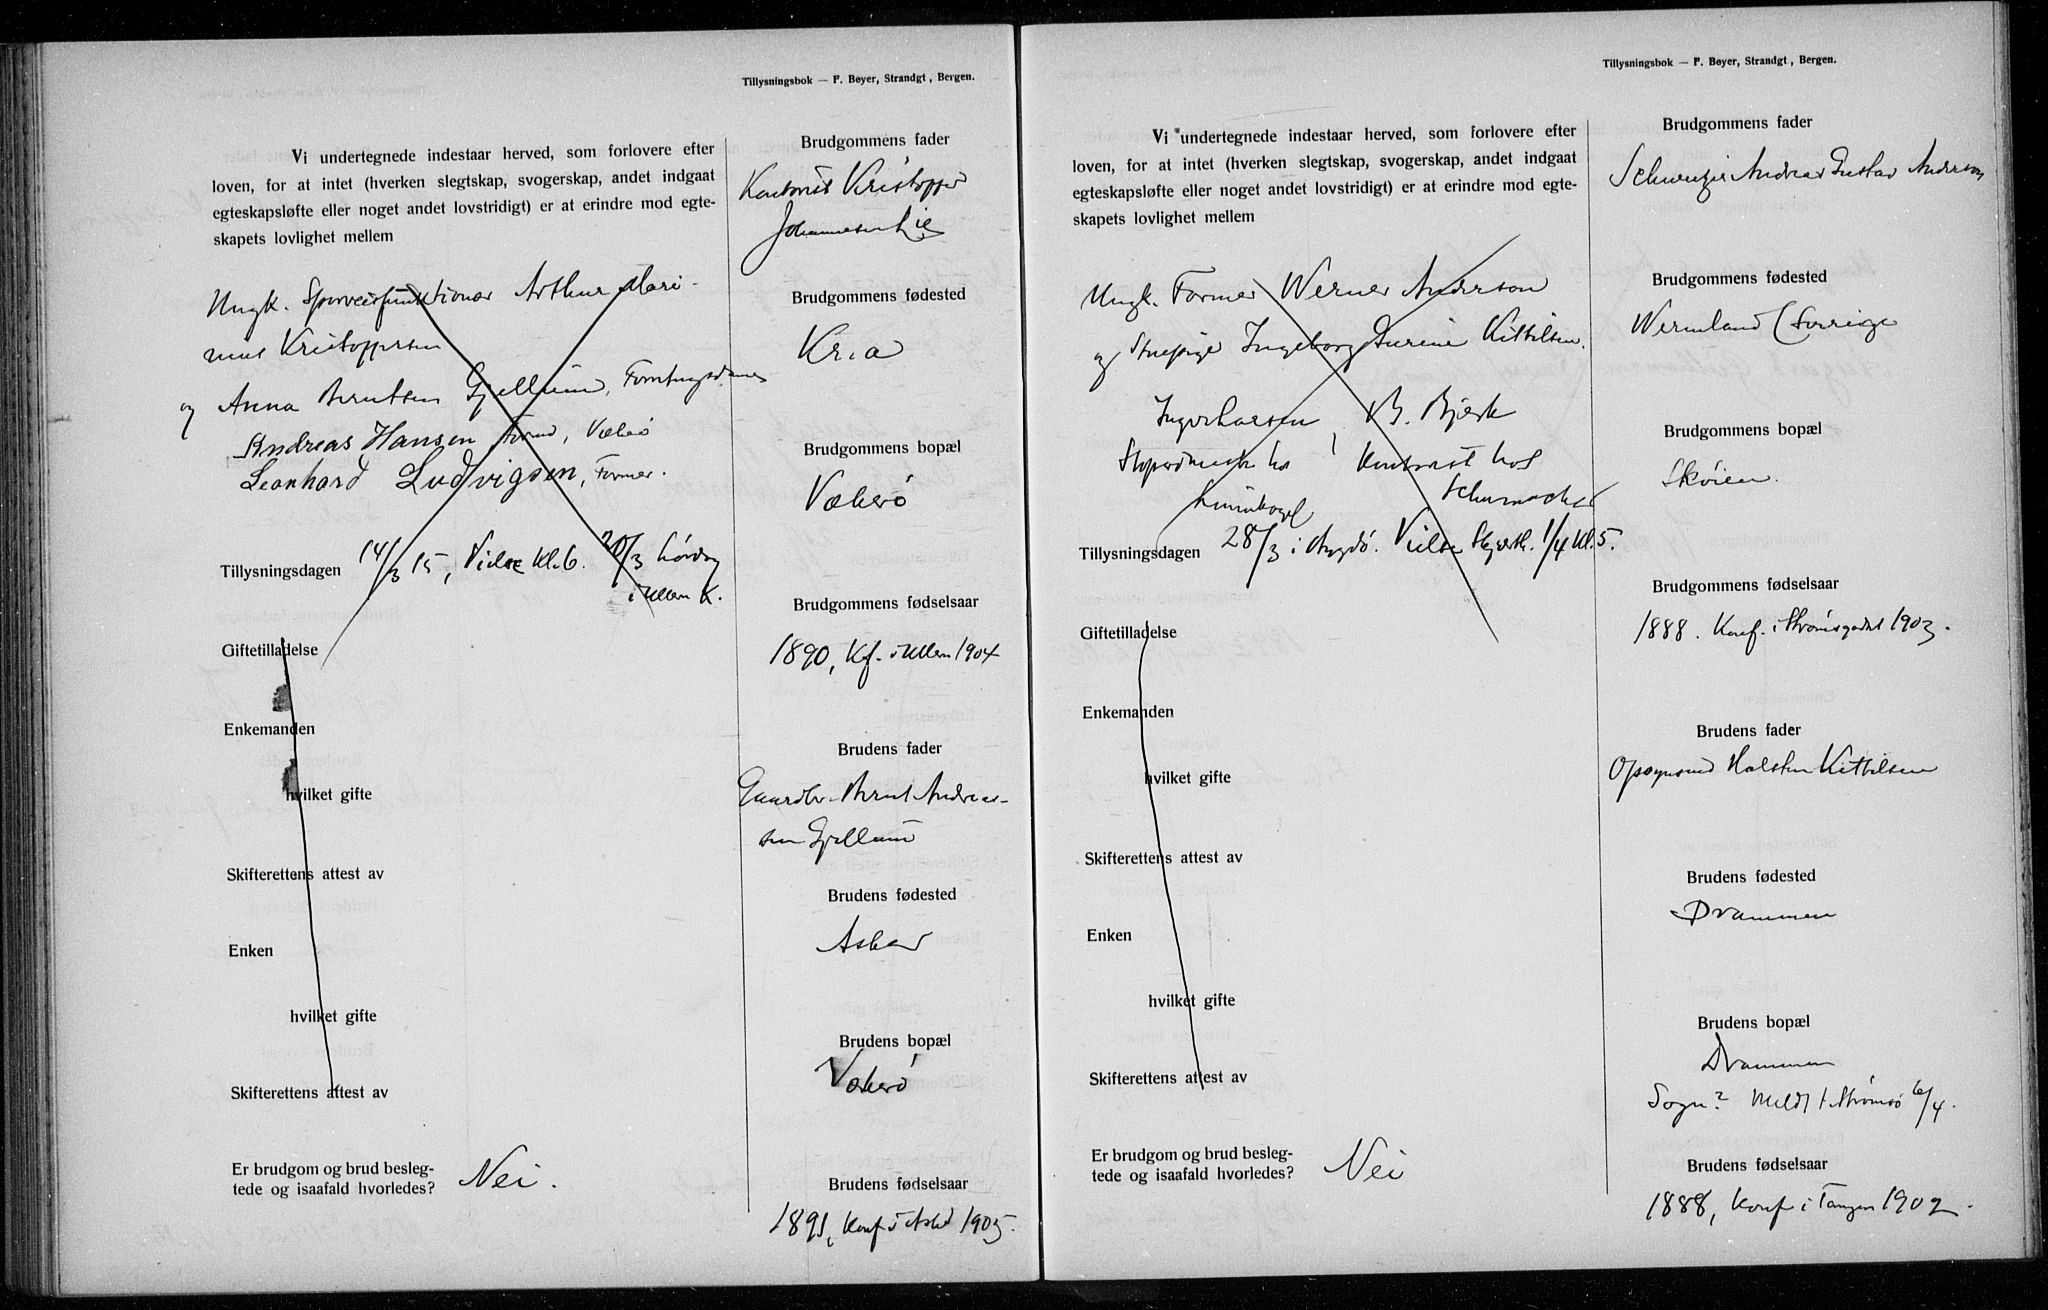 Tillysningsbok — F. Bøyer, Strandgt, Bergen.
Vi undertegnede indestaar herved, som forlovere efter
loven, for at intet (hverken slegtskap, svogerskap, andet indgaat
egteskapsløfte eller noget andet lovstridigt) er at erindre mod egte-
skapets lovlighet mellem
Ungk. Sporveisfunktionær Arthur Mari-
nus Kristoffersen
og Anna Berntsen Gjellum,
Andreas Hansen Væherø
Leonhard Ludvigsen, Former.
Tillysningsdagen 14/3 15, Vielse Kl. 6. 20/3 Lørdag
i Ullern K.
Giftetilladelse
Enkemanden
hvilket gifte
Skifterettens attest av
Enken
hvilket gifte
Skifterettens attest av
Er brudgom og brud besleg-
tede og isaafald hvorledes? Nei.
Brudgommens fader
Kristoffer
Johannesen Lie
Brudgommens fødested
Kr.a
Brudgommens bopæl
Væherø
Brudgommens fødselsaar
1890, Kf. i Ullern 1904
Brudens fader
Gaardbr. Bernt Andreas-
sen Gjellum
Brudens fødested
Asker
Brudens bopæl
Væherø
Brudens fødselsaar
1891, Konf i Asker 1905.
Tillysningsbok — F. Bøyer, Strandgt, Bergen.
Vi undertegnede indestaar herved, som forlovere efter
loven, for at intet (hverken slegtskap, svogerskap, andet indgaat
egteskapsløfte eller noget andet lovstridigt) er at erindre mod egte-
skapets lovlighet mellem
Ungk. Former Werner Anderson
og Stuepige Ingeborg Kittilsen.
Inger Larsen, B. Bjerk
Kontorist hos
Schumacher
Tillysningsdagen 28/3 i Bygdø. Vielse 1/4 Kl. 5.
Giftetilladelse
Enkemanden
hvilket gifte
Skifterettens attest av
Enken
hvilket gifte
Skifterettens attest av
Er brudgom og brud besleg-
tede og isaafald hvorledes? Nei
Brudgommens fader
Schweitzer Andreas Gustav Anderson
Brudgommens fødested
Wermland (Sverige
Brudgommens bopæl
Skøien.
Brudgommens fødselsaar
1888. Konf. i Strømsgodset 1903.
Brudens fader
Opsynsmd Halsten Kittilsen
Brudens fødested
Drammen
Brudens bopæl
Drammen
Sogn? Meldt t. Strømsø 6/4.
Brudens fødselsaar
1888, Konf i Tangen 1902.